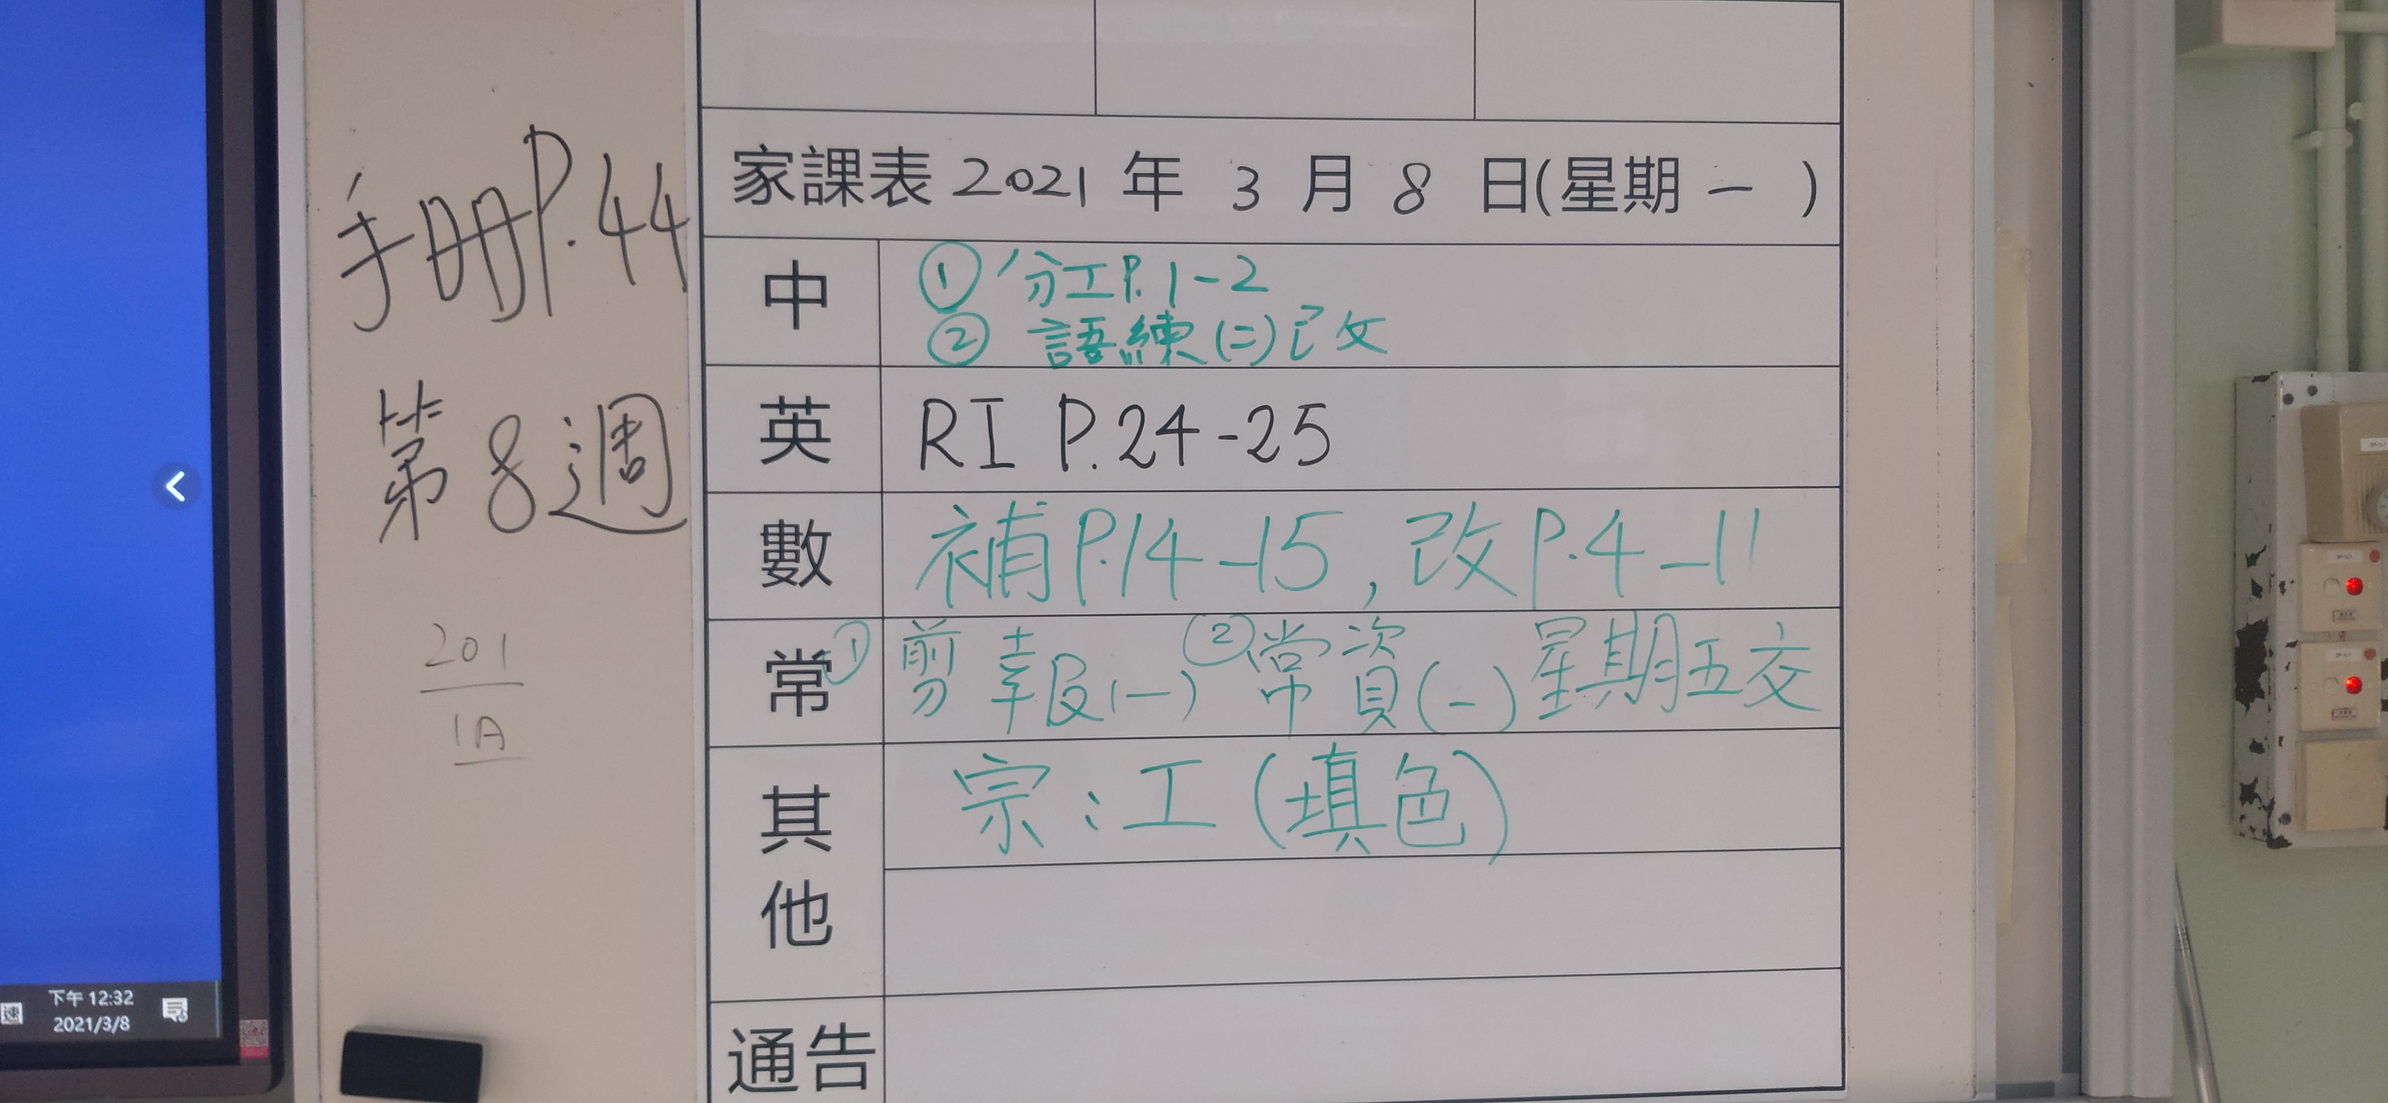 手冊P.44
第8週
201
1A
家課表 2021 年 3 月 8 日(星期 一 )
中
① 分工P.1-2
② 語練(二)已改
英 RI P.24-25
數 補P.14-15, 改P.4-11
常 ①剪報(一) ②常資(一)星期五交
其他 宗:工(填色)
通告
速
下午 12:32
2021/3/8